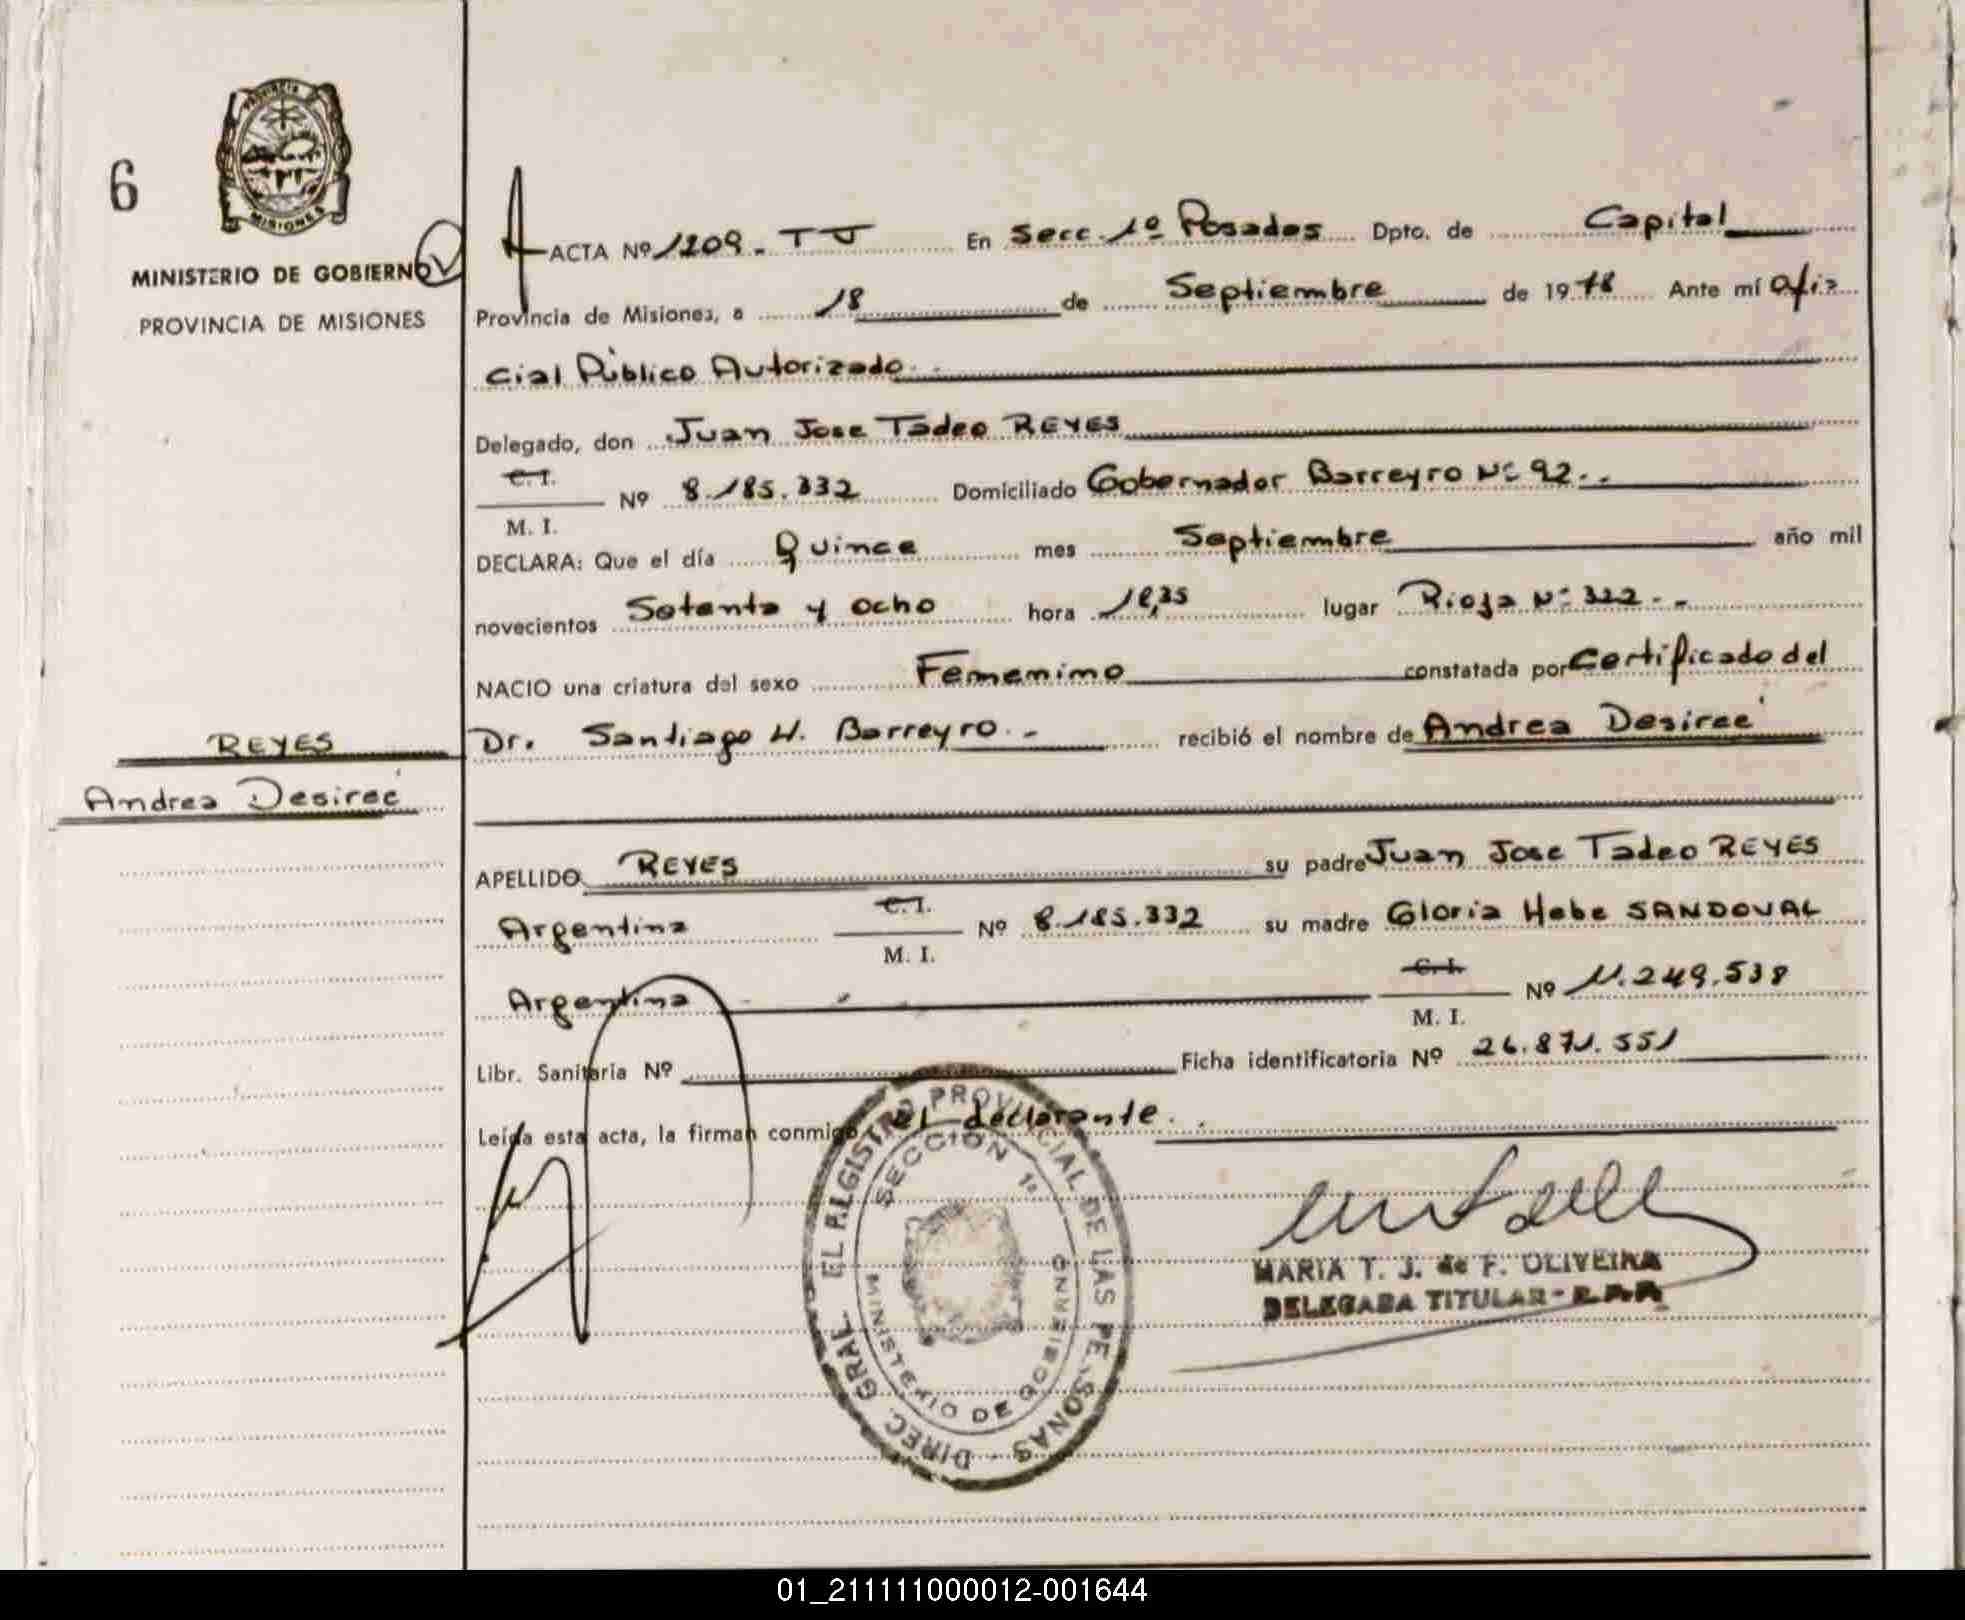 6
PROVINCIA
MISIONES
MINISTERIO DE GOBIERNO
PROVINCIA DE MISIONES
ACTA Nº 1209.- TJ En Secc. 1º Posadas Dpto. de Capital
Provincia de Misiones, a 18 de Septiembre de 1978 Ante mí Ofi=
cial Público Autorizado.-
Delegado, don Juan Jose Tadeo REYES
C. I.
M. I. Nº 8.185.332 Domiciliado Gobernador Barreyro Nº 92.-
DECLARA: Que el día Quince mes Septiembre año mil
novecientos Setenta y ocho hora lugar Rioja Nº 322.-
NACIO una criatura del sexo Femenino constatada por Certificado del
Dr. Santiago H. Barreyro.- recibió el nombre de Andrea Desireé
REYES
Andrea Desireé
APELLIDO REYES su padre Juan Jose Tadeo REYES
Argentina C. I.
M. I. Nº 8.185.332 su madre Gloria Hebe SANDOVAL
Argentina C. I.
M. I. Nº 11.249.538
Libr. Sanitaria Nº Ficha identificatoria Nº 26.871.551
Leída esta acta, la firman conmigo el declarante.
DIREC. GRAL. DEL REGISTRO PROVINCIAL DE LAS PERSONAS
SECCION 1ª
MINISTERIO DE GOBIERNO
MARIA T. J. de F. OLIVEIRA
DELEGADA TITULAR - R.P.P.
01_211111000012-001644